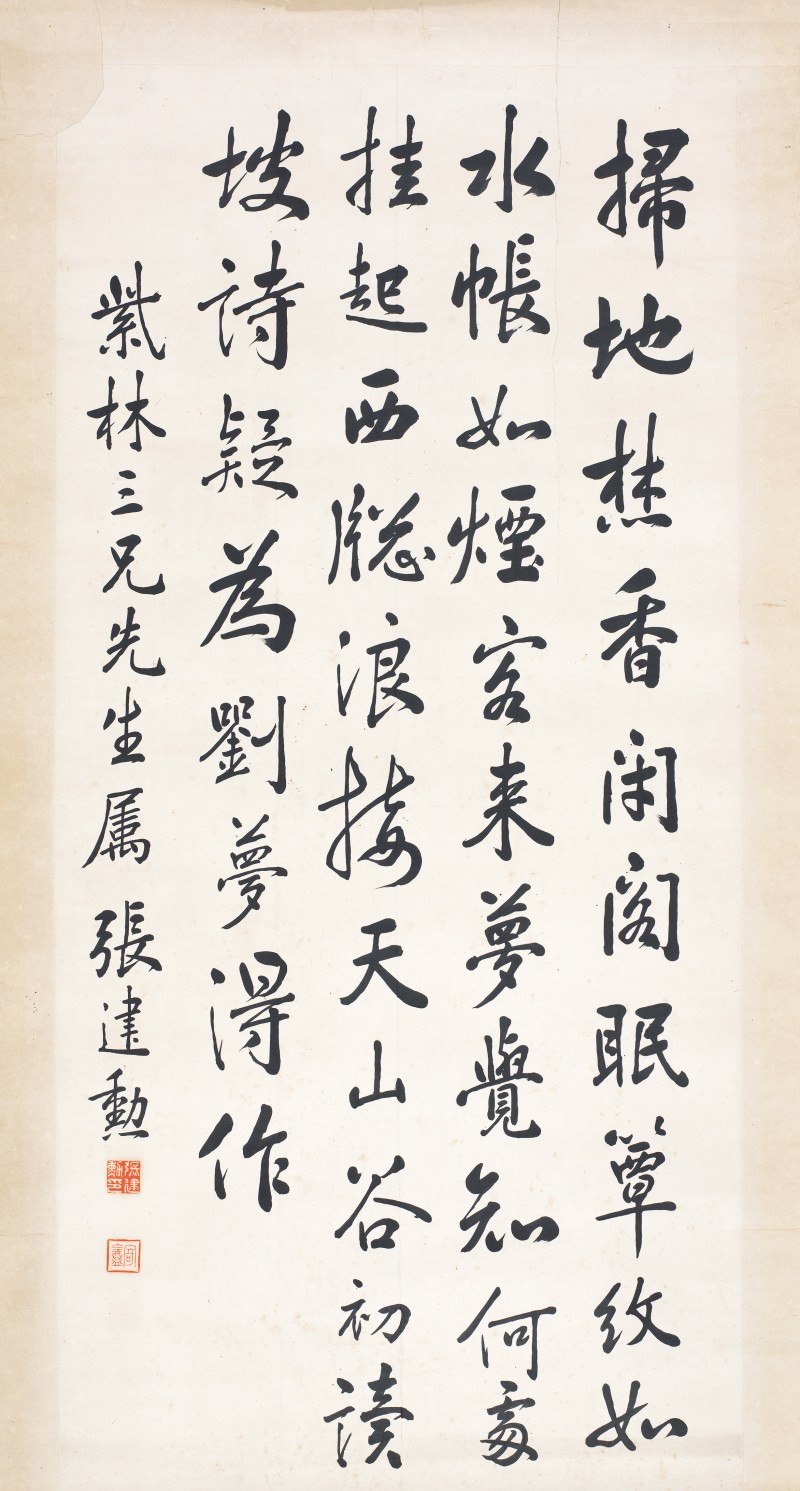 掃地焚香閉閣眠簟紋如
水帳如煙客来夢覺知何處
挂起西窓浪接天山谷初讀
坡詩疑為劉夢得作
紫林三兄先生属張建勳
張建勳印